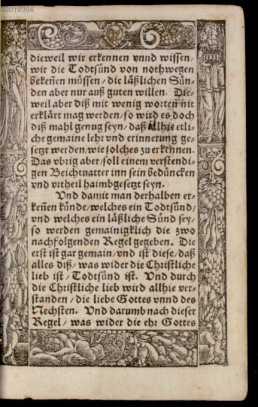 dieweil wir erkennen vnnd wissen/
wir die Todtsünd von nothwegen
bekeñen müssen / die läßlichen Sün-
den aber nur auß guten willen. Die-
weil aber diß mit wenig worten nit
erklärt mag werden/ so wird es doch
diß mahl genug seyn/ daß allhie etli-
che gemaine lehr vnd erinnerung ge-
setzt werden wie solches zu erkeñnen.
Das vbrig aber/ soll einem verstendi-
gen Beichtuatter inn sein bedüncken
vnd vrtheil haimbgesetzt seyn.
Vnd damit man derhalben er-
keñen künde/ welches ein Todtsünd/
vnd welches ein läßliche Sünd sey/
so werden gemainigklich die zwo
nachfolgenden Regel gegeben. Die
erst ist gar gemain/ vnd ist diese/ daß
alles diß/ was wider die Christliche
lieb ist/ Todtsünd ist. Vnd durch
die Christliche lieb wird allhie ver-
standen / die liebe Gottes vnnd des
Nechsten. Vnd darumb nach dieser
Regel / was wider die ehr Gottes